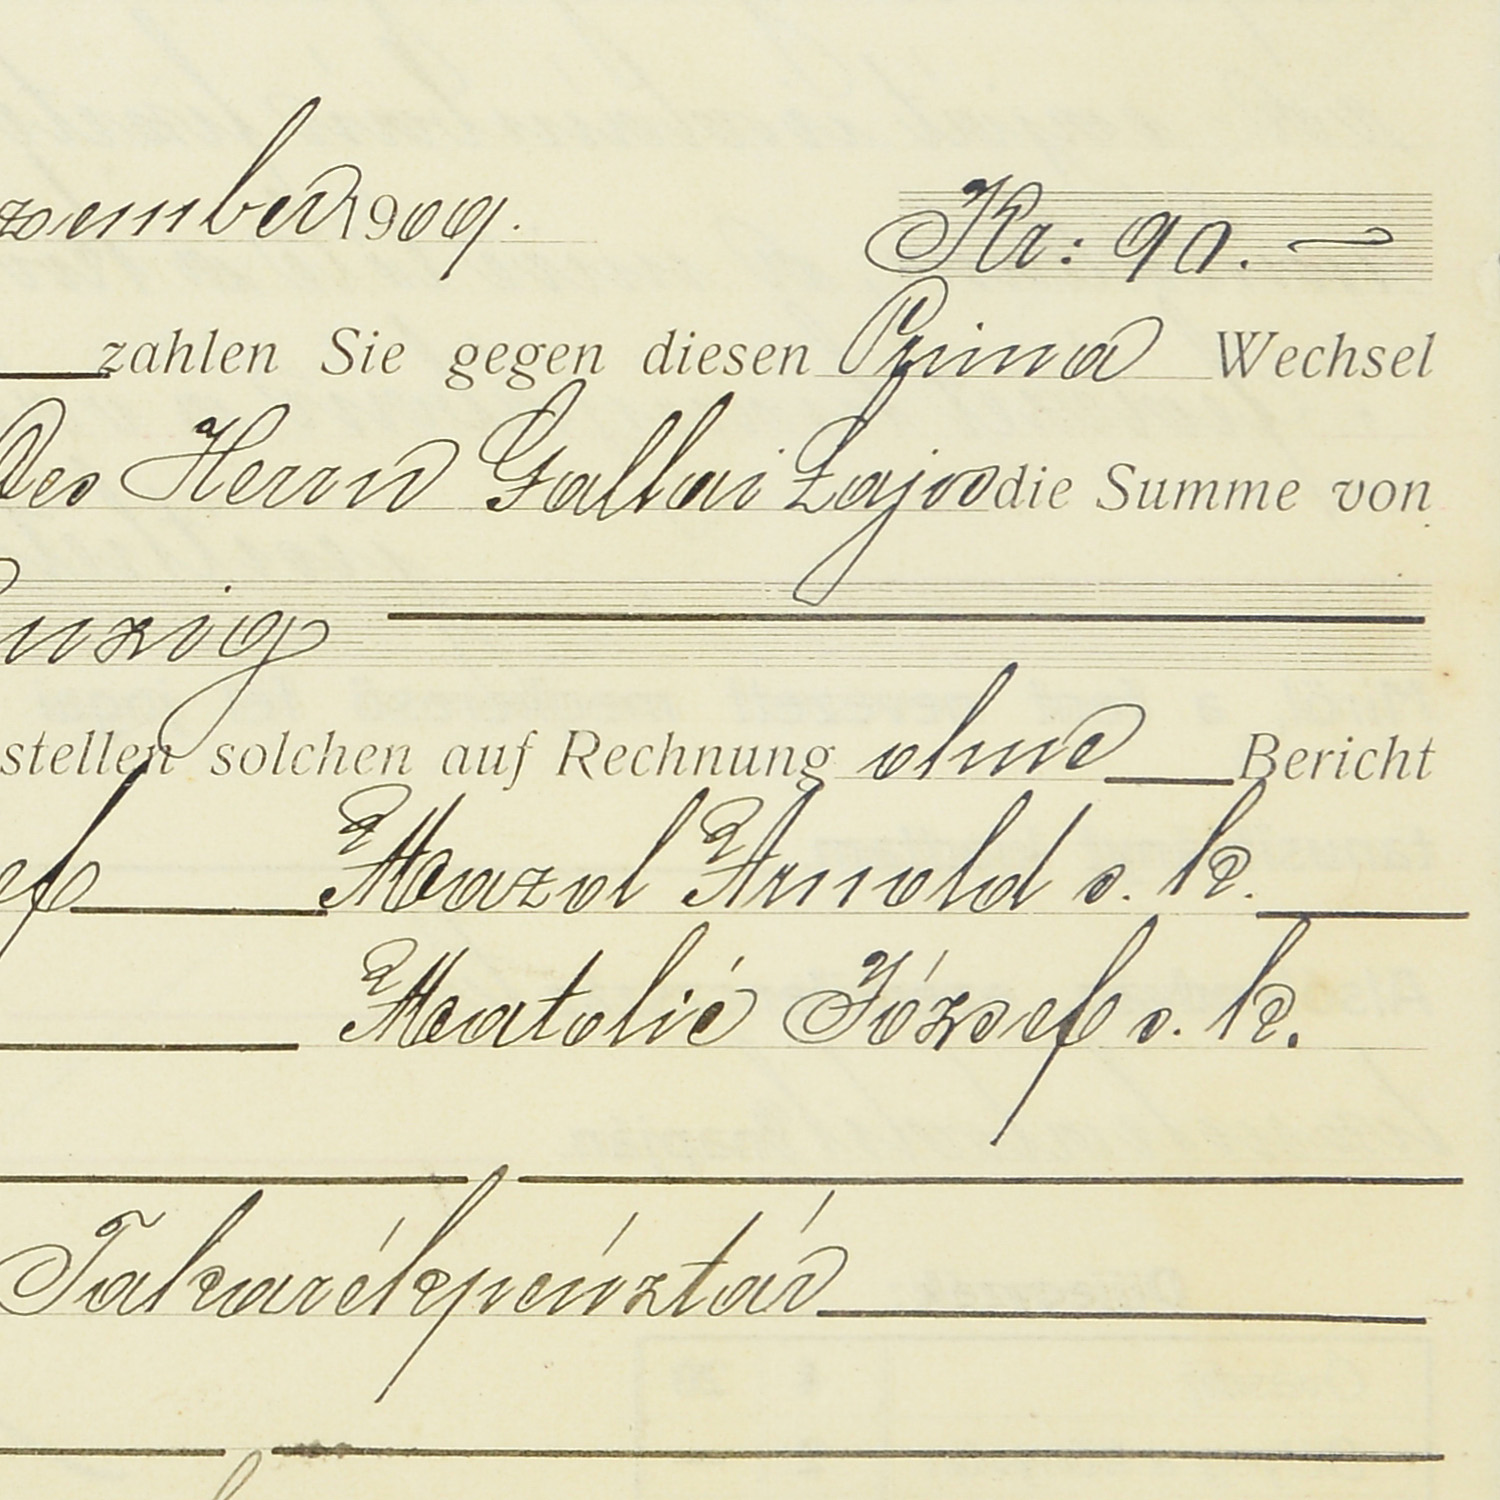 zember 1909. Kr: 90. —
zahlen Sie gegen diesen Prima Wechsel
Des Herrn Gallai Lajos die Summe von
unzig
stellen solchen auf Rechnung ohne Bericht
ef Mazol Arnold s. k.
Matolić József s. k.
Takarékpénztár